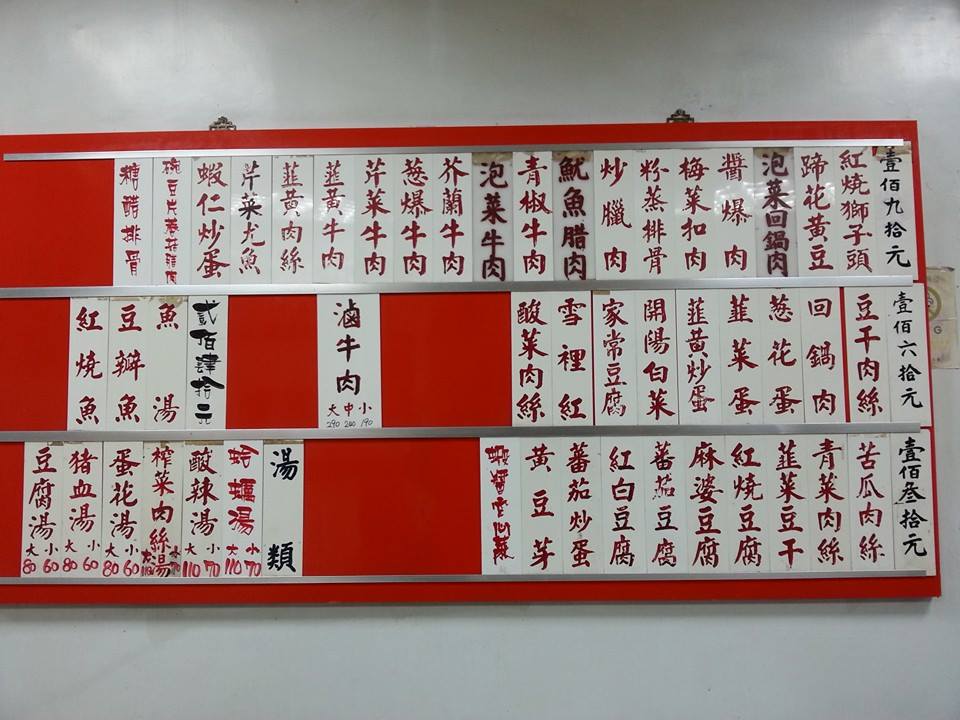 壹佰九拾元
紅燒獅子頭
蹄花黃豆
泡菜回鍋肉
醬爆肉
梅菜扣肉
粉蒸排骨
炒臘肉
魷魚腊肉
青椒牛肉
泡菜牛肉
芥蘭牛肉
葱爆牛肉
芹菜牛肉
韮黃牛肉
韮黃肉絲
芹菜尤魚
蝦仁炒蛋
碗豆片香菇
糖醋排骨
壹佰六拾元
豆干肉絲
回鍋肉
葱花蛋
韮菜蛋
韮黃炒蛋
開陽白菜
家常豆腐
雪裡紅
酸菜肉絲
滷牛肉
大中小
290 240 190
貳佰肆拾元
魚湯
豆瓣魚
紅燒魚
壹佰叁拾元
苦瓜肉絲
青菜肉絲
韮菜豆干
紅燒豆腐
麻婆豆腐
蕃茄豆腐
紅白豆腐
蕃茄炒蛋
黃豆芽
蝦醬空心菜
湯類
蛤蠣湯
大110 小70
酸辣湯
大110 小70
榨菜肉絲湯
蛋花湯
大80 小60
猪血湯
大80 小60
豆腐湯
大80 小60